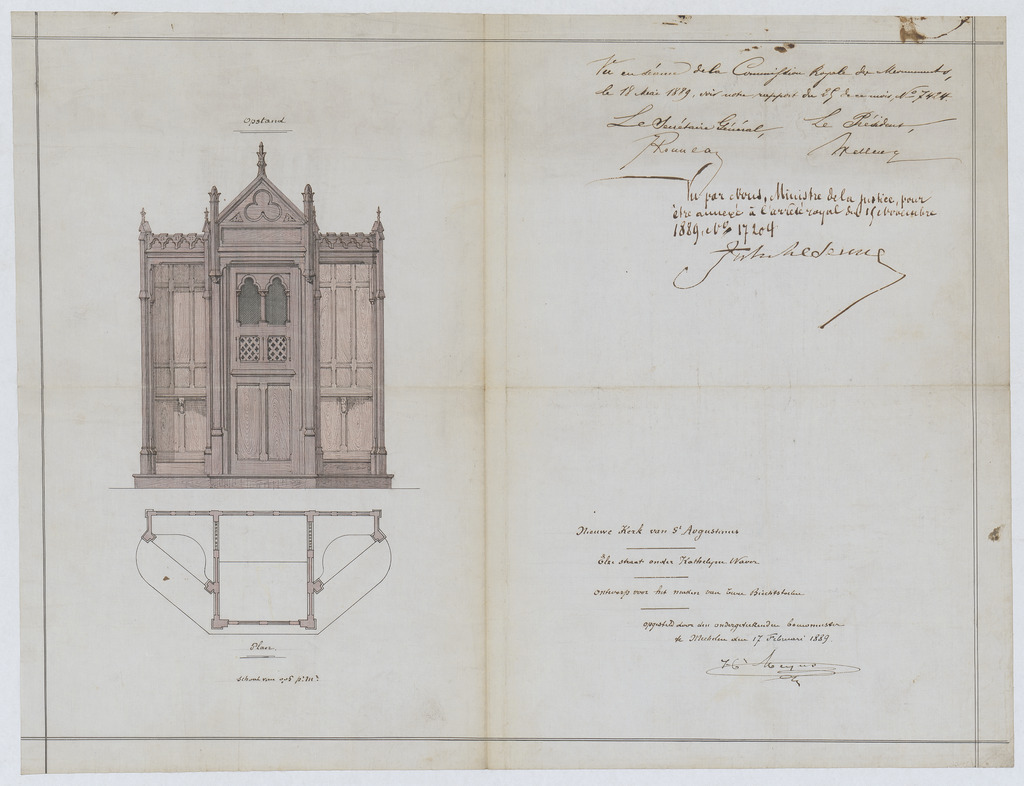 Opstand
Plan
Schaal van 0,05 p. Mr.
Vu en séance de la Commission Royale des Monuments,
le 18 Mai 1889, voir notre rapport du 25 de ce mois, No 7424.
Le Secrétaire Général,
Le Président,
Wellens
Vu par Nous, Ministre de la Justice, pour
être annexé à l'arrêté royal du 15 Novembre
1889, No 17204
Nieuwe Kerk van St Augustinus
Elzestraat onder Kathelyne Waver
Ontwerp voor het maken van twee Biechtstoelen
Opgesteld door den ondergeteekenden bouwmeester
te Mechelen den 17 Februari 1889